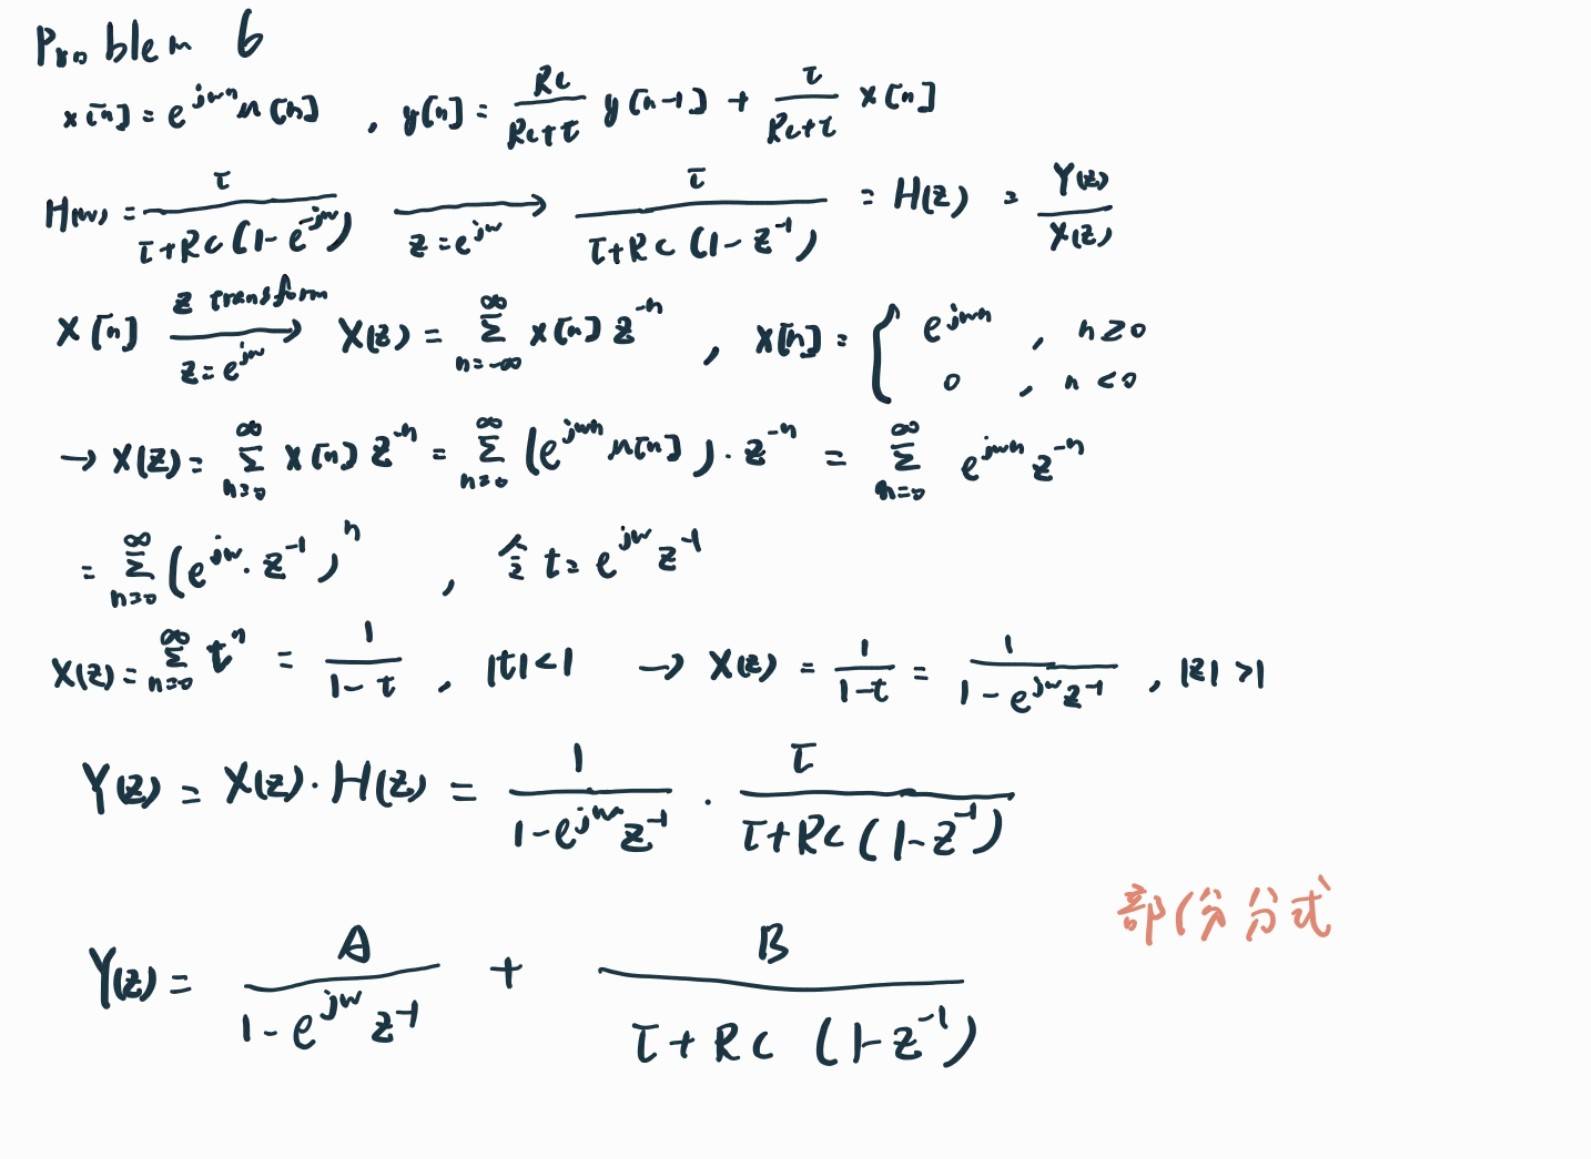 Problem 6
x[n] = e^{jωn} u[n] , y[n] = \frac{RC}{RC+τ} y[n-1] + \frac{τ}{RC+τ} x[n]
H(ω) = \frac{τ}{τ+RC(1-e^{-jω})} \xrightarrow[z=e^{jω}]{} \frac{τ}{τ+RC(1-z^{-1})} = H(z) = \frac{Y(z)}{X(z)}
x[n] \xrightarrow[z=e^{jω}]{z transform} X(z) = \sum_{n=-∞}^{∞} x[n] z^{-n} , x[n] = { e^{jωn} , n≥0
0 , n<0
→ X(z) = \sum_{n=0}^{∞} x[n] z^{-n} = \sum_{n=0}^{∞} (e^{jωn} u[n]) · z^{-n} = \sum_{n=0}^{∞} e^{jωn} z^{-n}
= \sum_{n=0}^{∞} (e^{jω} · z^{-1})^n , 令 t = e^{jω} z^{-1}
X(z) = \sum_{n=0}^{∞} t^n = \frac{1}{1-t} , |t|<1 → X(z) = \frac{1}{1-t} = \frac{1}{1-e^{jω}z^{-1}} , |z|>1
Y(z) = X(z) · H(z) = \frac{1}{1-e^{jω}z^{-1}} · \frac{τ}{τ+RC(1-z^{-1})}
部份分式
Y(z) = \frac{A}{1-e^{jω}z^{-1}} + \frac{B}{τ+RC(1-z^{-1})}